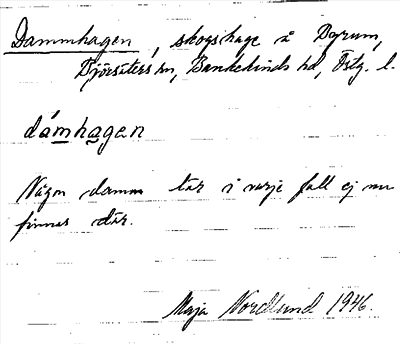 Dammhagen, skogshage å Byrum,
Björsäters sn, Bankekinds hd, Östg. l.
dámhagen
Någon damm tår i varje fall ej nu
finnas där.
Maja Nordlund 1946.